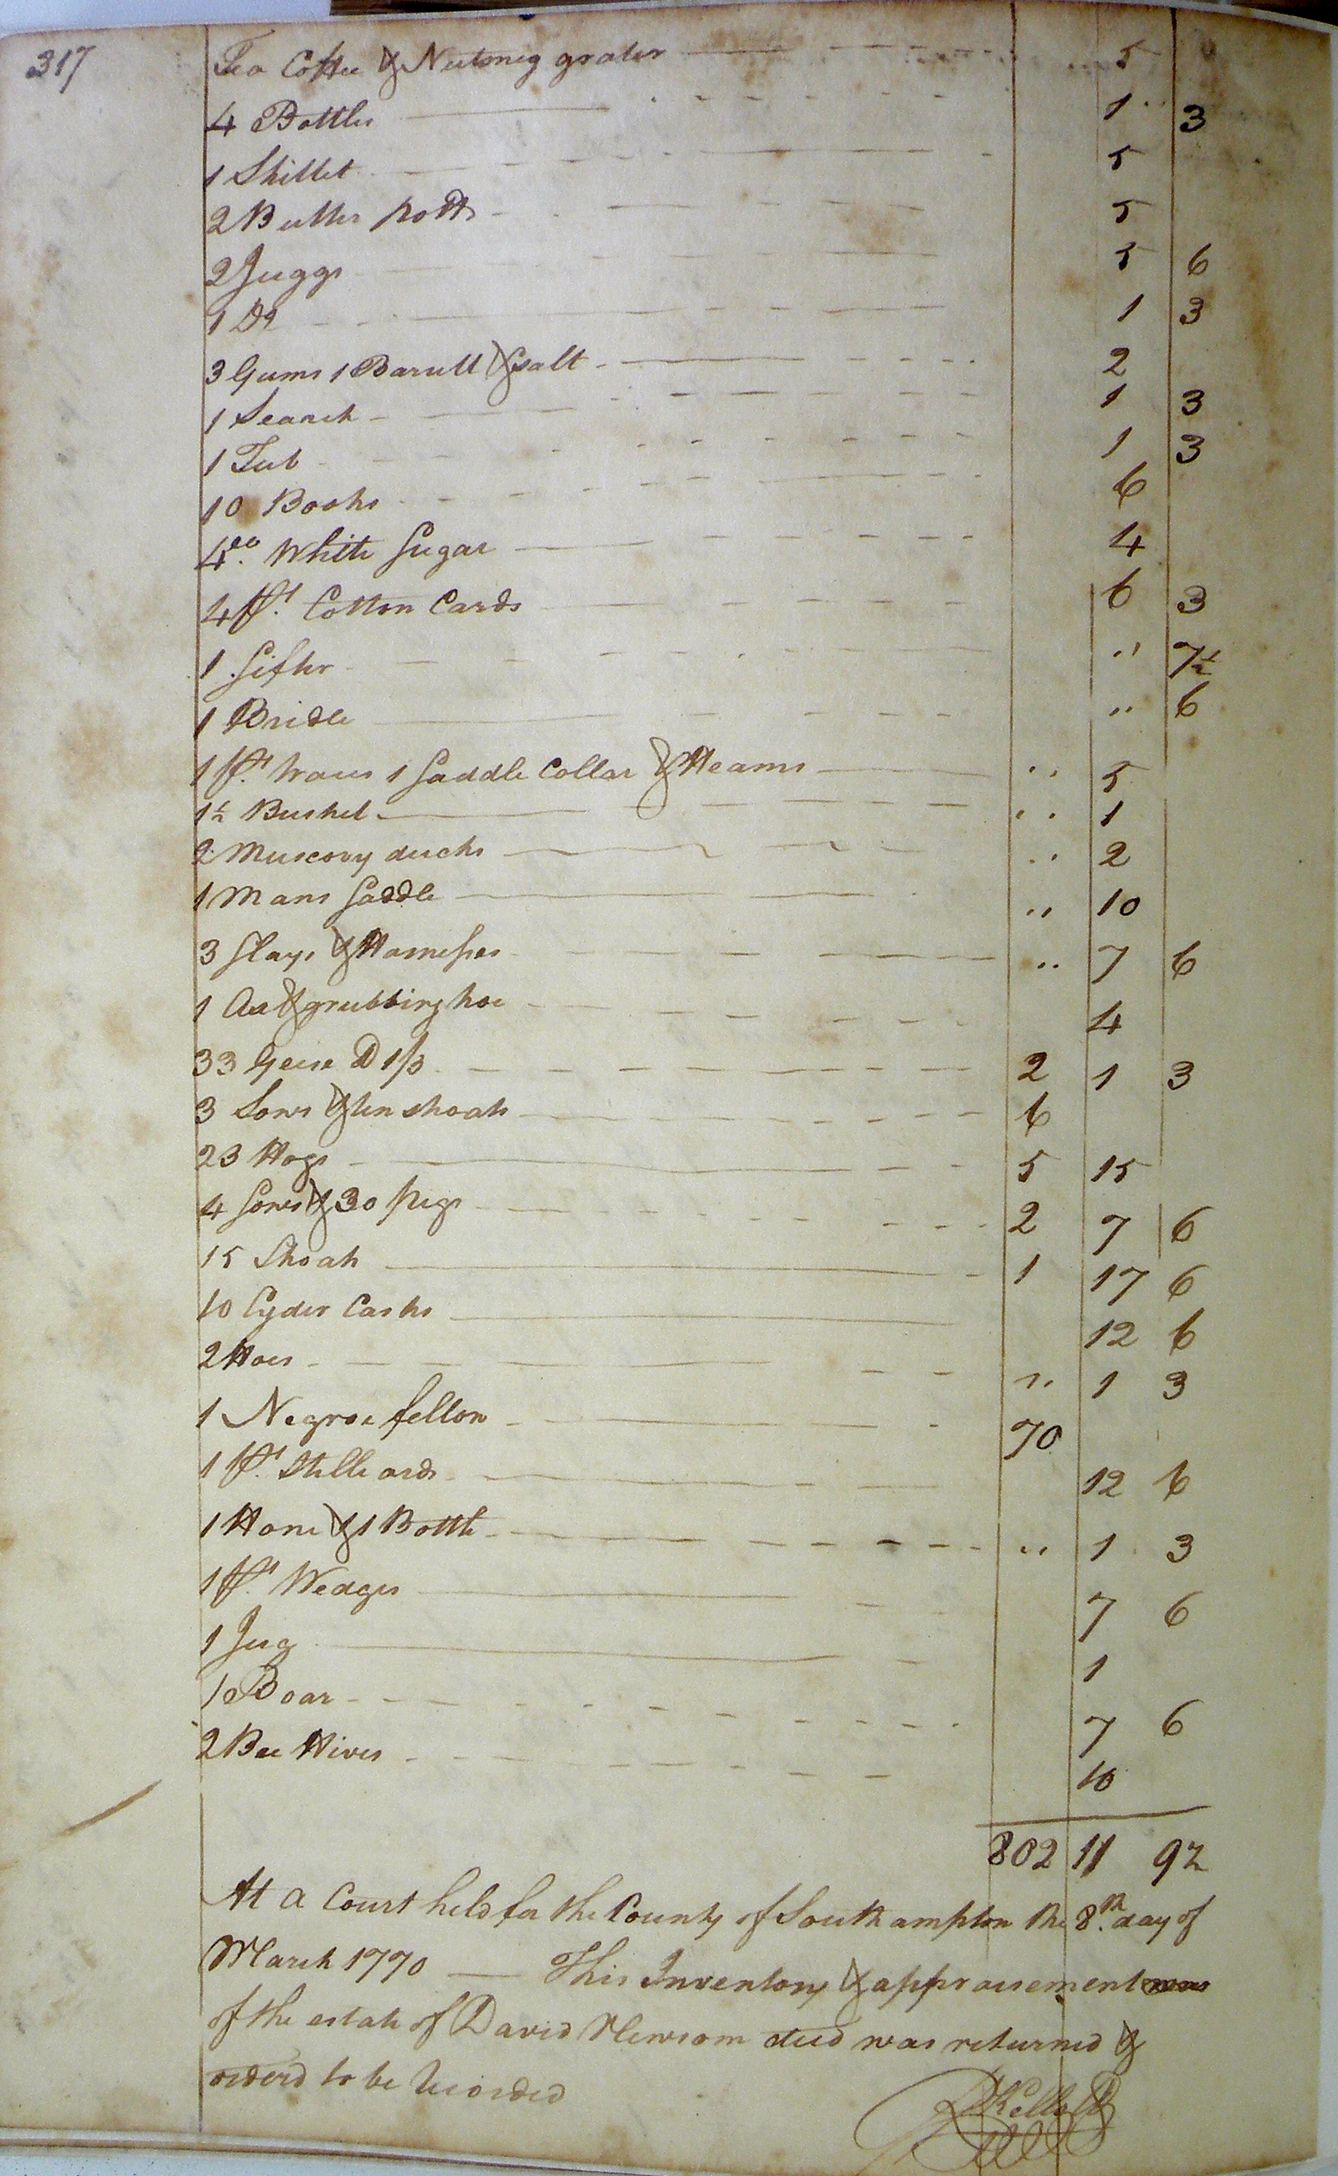 317
Tea Coffee & Nutmeg grater 5
4 Bottles 1 3
1 Skillet 5
2 Butter potts 5
2 Juggs 5 6
1 Do 1 3
3 Gums 1 Barrell & Salt 2
1 Search 1 3
1 Tub 1 3
10 Books 6
4 White Sugar 4
4 pr. Cotton Cards 6 3
1 Sifter " 7½
1 Bridle " 6
1 pr. traces 1 Saddle Collar & Heams " 5
1½ Bushel " 1
2 Muscovy ducks " 2
1 Mans Saddle " 10
3 Slays & Harnesses " 7 6
1 Ax & grubbing hoe 4
33 Geese @ 1/3 2 1 3
3 Sows & ten shoats 6
23 Hogs 5 15
4 Sows & 30 pigs 2 7 6
15 Shoats 1 17 6
10 Cyder Casks 12 6
2 Hoes " 1 3
1 Negroe fellow 70
1 pr. Stilleards 12 6
1 Hone & 1 Bottle " 1 3
1 pr. Wedges 7 6
1 Jug 1
1 Boar 7 6
2 Bee Hives 10
802 11 9½
At a Court held for the County of Southampton the 8th. day of
March 1770 This Inventory & appraisement was
of the estate of David Newsom decd was returned &
orderd to be Recorded